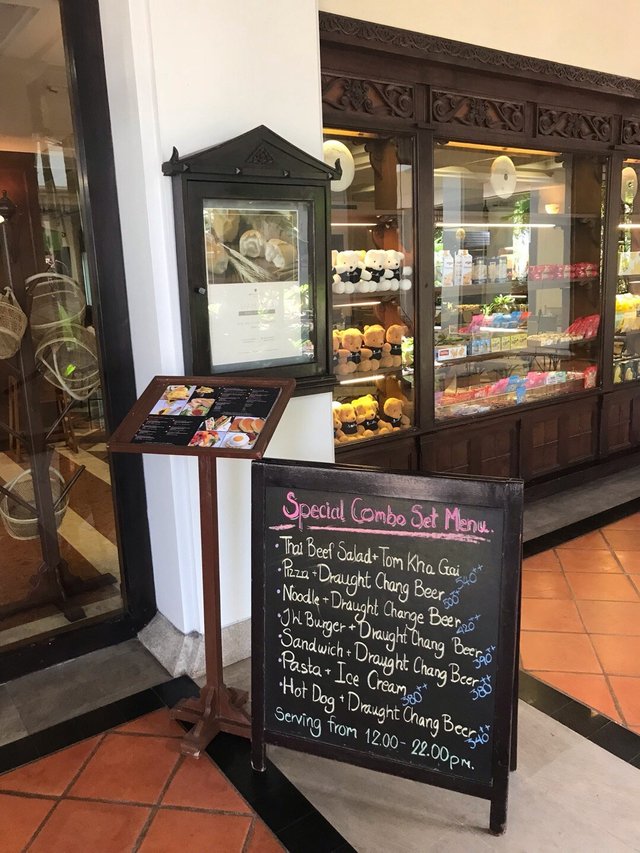 Special Combo Set Menu.
• Thai Beef Salad + Tom Kha Gai 540++
• Pizza + Draught Chang Beer 500++
• Noodle + Draught Change Beer 420++
• J.W. Burger + Draught Chang Beer 390++
• Sandwich + Draught Chang Beer 380++
• Pasta + Ice Cream 380++
• Hot Dog + Draught Chang Beer 340++
Serving from 12.00 - 22.00 pm.